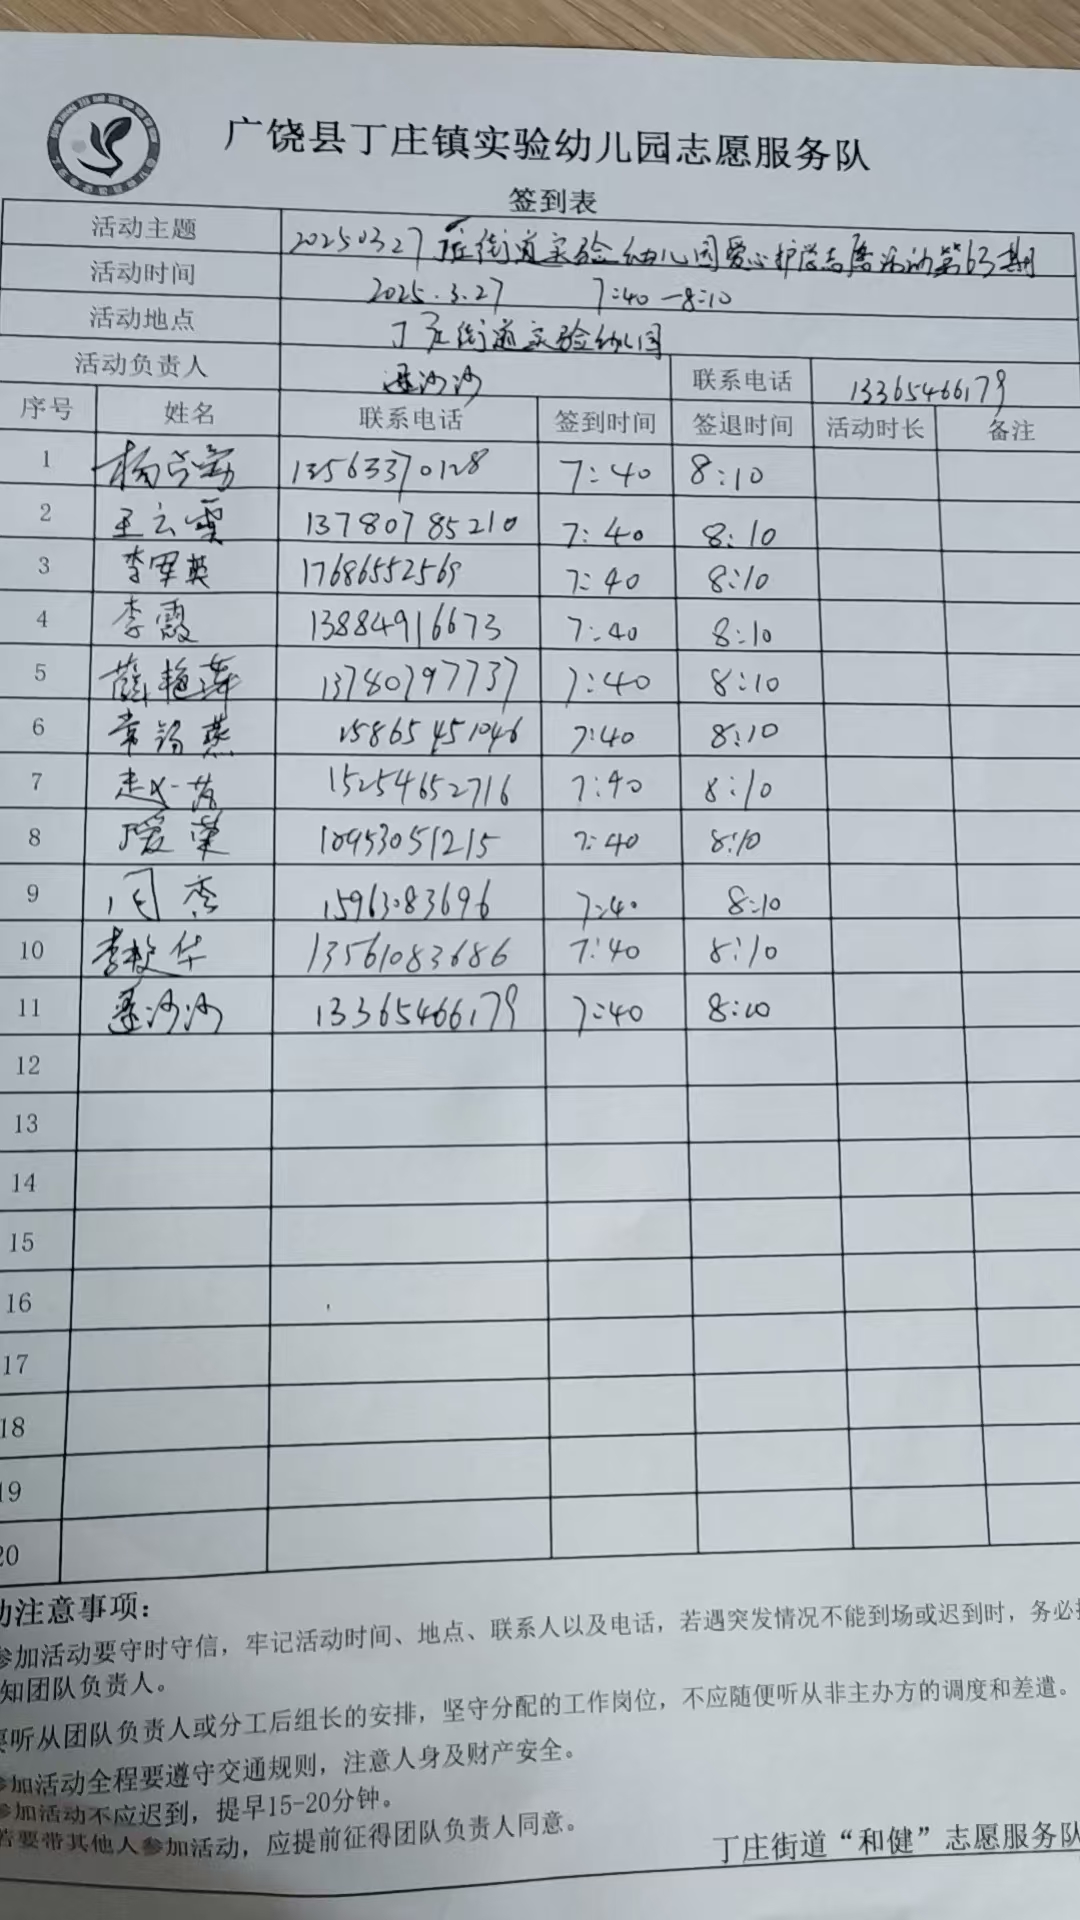 广饶县丁庄镇实验幼儿园志愿服务队
签到表
活动主题 20250327丁庄街道实验幼儿园爱心护学志愿活动第63期
活动时间 2025.3.27 7:40-8:10
活动地点 丁庄街道实验幼儿园
活动负责人 沙沙 联系电话 13365466179
序号 姓名 联系电话 签到时间 签退时间 活动时长 备注
1 杨 13563370128 7:40 8:10
2 王云霞 13780785210 7:40 8:10
3 李军英 17686552569 7:40 8:10
4 李霞 13884916673 7:40 8:10
5 薛艳萍 13780797737 7:40 8:10
6 常锡燕 15865451046 7:40 8:10
7 赵 15254652716 7:40 8:10
8 荣 18953051215 7:40 8:10
9 闫杏 15963083696 7:40 8:10
10 李 华 13561083686 7:40 8:10
11 沙沙 13365466179 7:40 8:10
12
13
14
15
16
17
18
19
20
动注意事项:
参加活动要守时守信，牢记活动时间、地点、联系人以及电话，若遇突发情况不能到场或迟到时，务必
知团队负责人。
要听从团队负责人或分工后组长的安排，坚守分配的工作岗位，不应随便听从非主办方的调度和差遣。
参加活动全程要遵守交通规则，注意人身及财产安全。
参加活动不应迟到，提早15-20分钟。
若要带其他人参加活动，应提前征得团队负责人同意。
丁庄街道“和健”志愿服务队